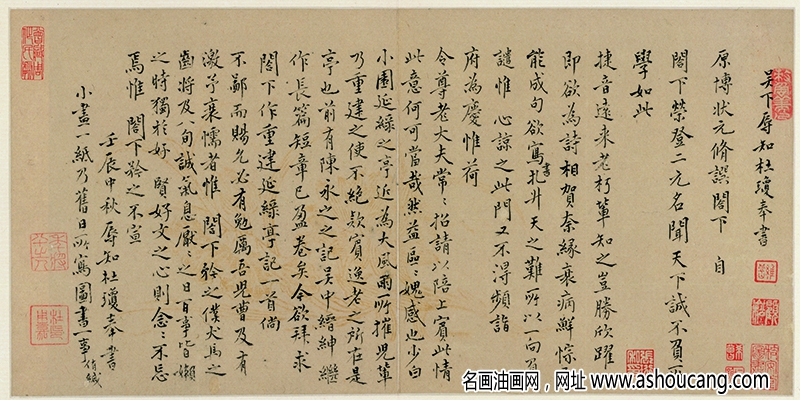 吴下辱知杜瓊奉書
原博狀元脩譔閤下 自
閤下榮登二元名聞天下誠不負所
學如此
捷音遠來老朽輩知之豈勝欣躍
即欲為詩相賀奈緣衰病鮮悰不
能成句欲寫書扎升天之難所以一向有
譴惟 心諒之此門又不得頻詣
府為慶惟荷
令尊老大夫常〻招請以陪上賓此情
此意何可當哉然益區〻媿感也少白
小園延綠之亭近為大風雨所摧兒輩
乃重建之使不絕欵賓逸老之所在是
亭也前有陳永之之記吴中縉紳繼
作長篇短章已盈卷矣今欲拜求
閤下作重建延綠亭記一首倘
不鄙而賜允必有勉厲吾兒曹及有
激予衰懦者惟 閤下矜之僕犬馬之
齒將及八旬誠氣息厭〻之日百事皆嬾
之時獨於好賢好文之心則念〻不忘
焉惟 閤下矜之不宣
壬辰中秋辱知杜瓊奉書
小畫一紙乃舊日所寫圖書一事
名画油画网，网址 www.ashoucang.com